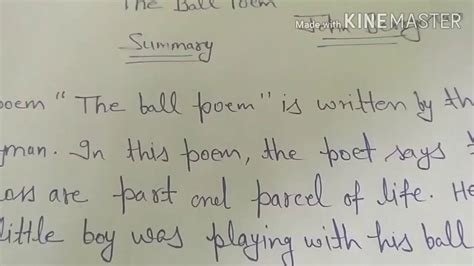 The Ball Poem
Made with KINEMASTER
Summary
poem " The ball poem" is written by th
yman. In this poem, the poet says t
oss are part and parcel of life. He
little boy was playing with his ball